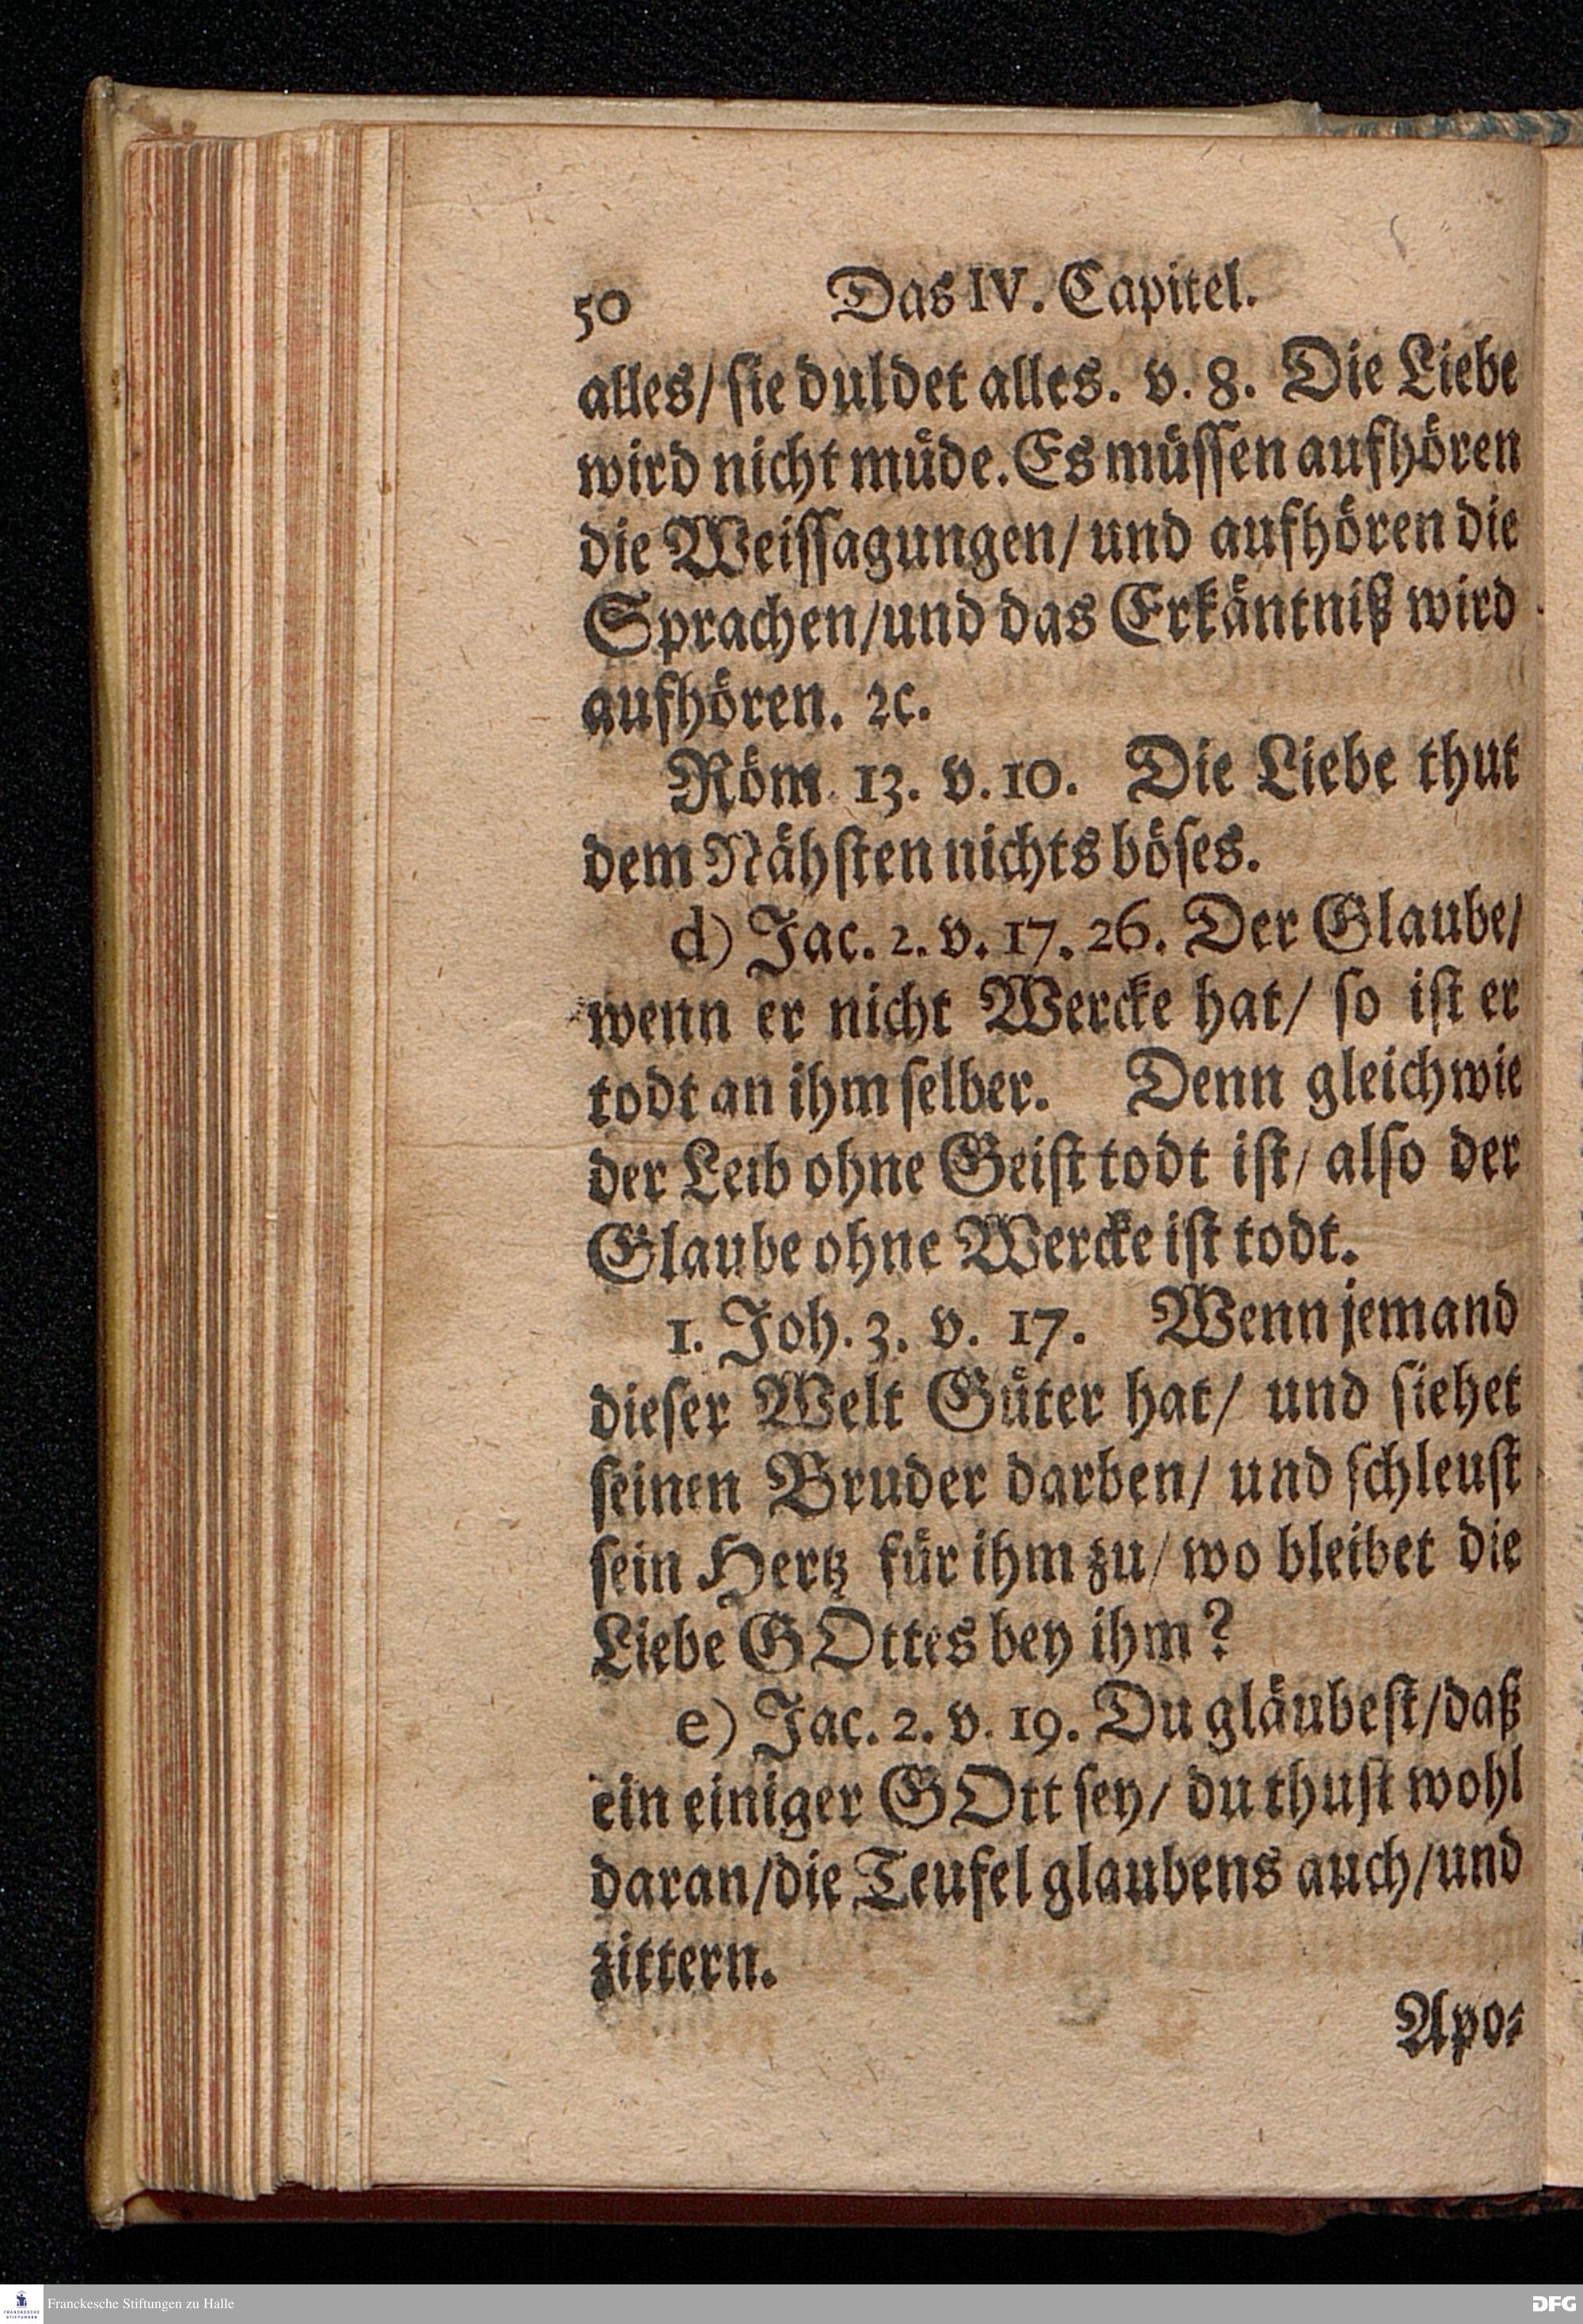 50 Das IV. Capitel.
alles/ sie duldet alles. v. 8. Die Liebe
wird nicht müde. Es müssen aufhören
die Weissagungen/ und aufhören die
Sprachen/und das Erkäntniß wird
aufhören. ꝛc.
Röm. 13. v. 10. Die Liebe thut
dem Nähsten nichts böses.
d) Jac. 2. v. 17. 26. Der Glaube/
wenn er nicht Wercke hat/ so ist er
todt an ihm selber. Denn gleichwie
der Leib ohne Geist todt ist/ also der
Glaube ohne Wercke ist todt.
1. Joh. 3. v. 17. Wenn jemand
dieser Welt Güter hat/ und siehet
seinen Bruder darben/ und schleust
sein Hertz für ihm zu/ wo bleibet die
Liebe GOttes bey ihm?
e) Jac. 2. v. 19. Du gläubest/daß
ein einiger GOtt sey/ du thust wohl
daran/die Teufel glaubens auch/und
zittern.
Apo-
FRANCKESCHE STIFTUNGEN
Franckesche Stiftungen zu Halle
DFG